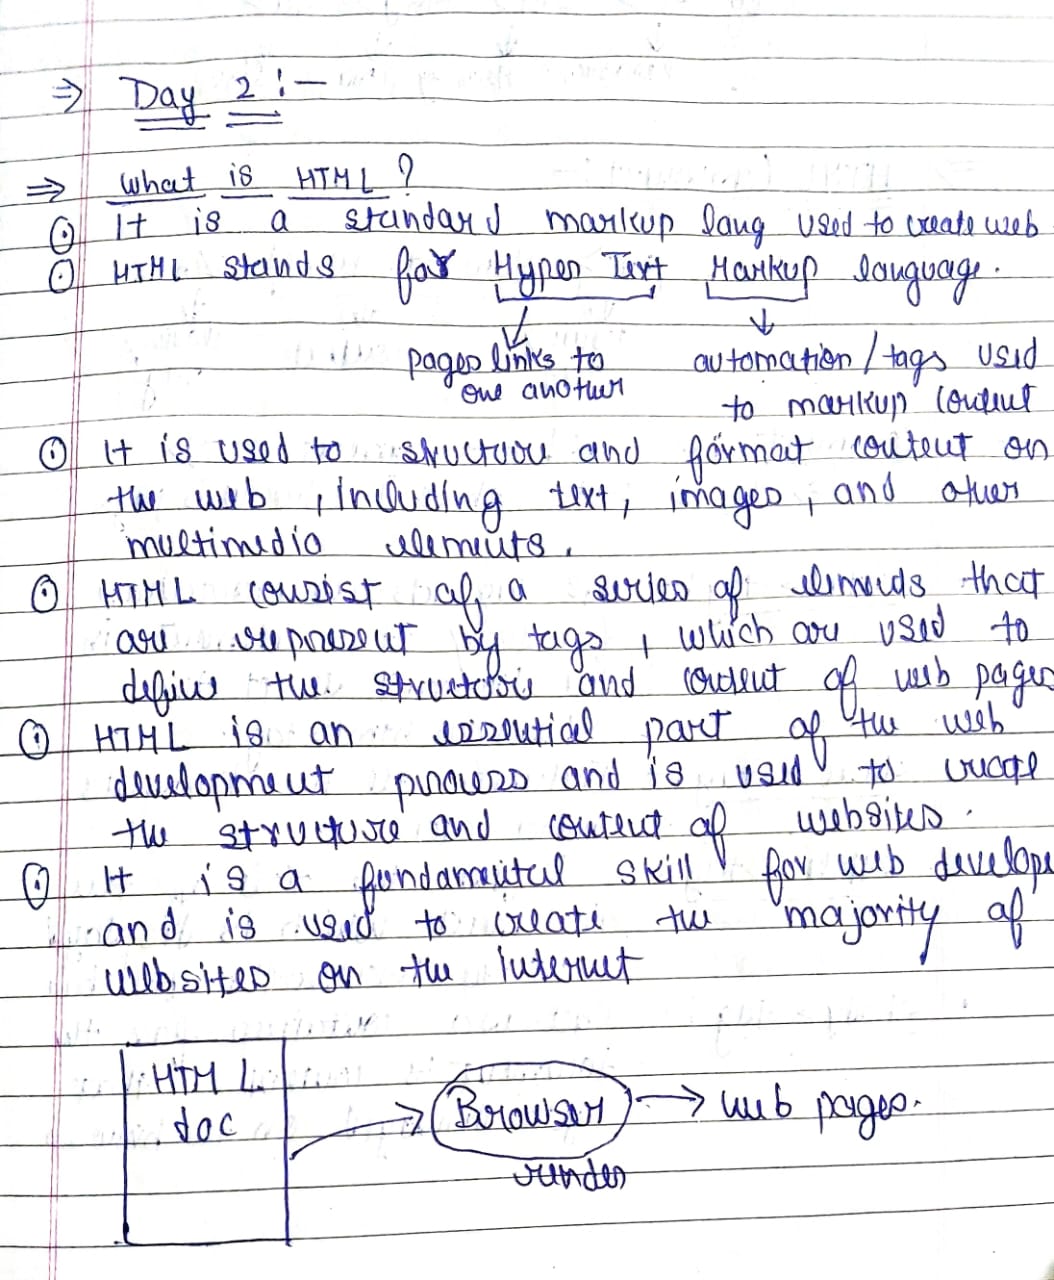 ⇒ Day 2 :-
⇒ What is HTML ?
⊙ It is a standard markup lang used to create web
⊙ HTML stands for Hyper Text Markup language.
pages links to
one another
automation / tags used
to markup content
⊙ It is used to structure and format content on
the web, including text, images, and other
multimedia elements.
⊙ HTML consist of a series of elements that
are represent by tags, which are used to
define the structure and content of web pages
⊙ HTML is an essential part of the web
development process and is used to create
the structure and content of websites.
⊙ It is a fundamental skill for web develope
and is used to create the majority of
websites on the internet
HTML
doc
→ Browser → web pages.
render